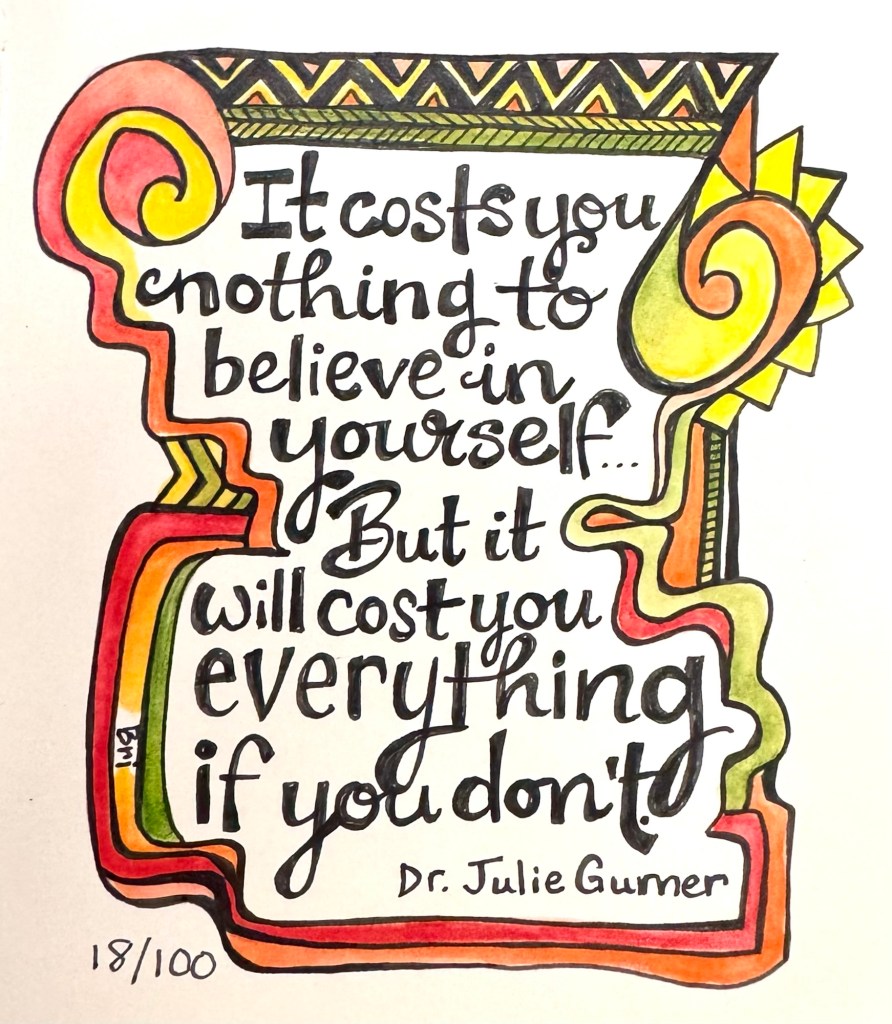 It costs you
nothing to
believe in
yourself...
But it
will cost you
everything
if you don't.
Dr. Julie Gurner
Bri
18/100